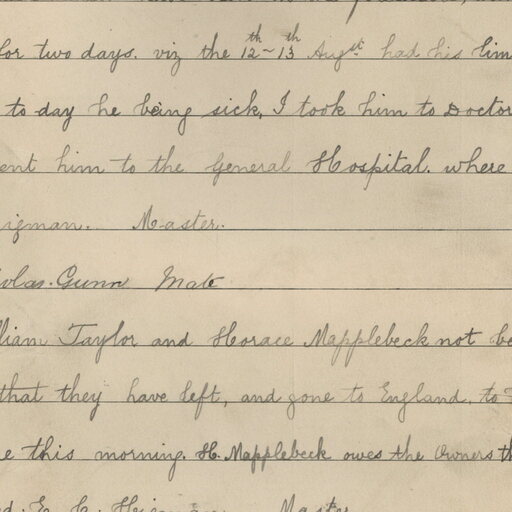 for two days. viz the 12th ~ 13th Augst had his
to day he being sick, I took him to Doctor
ent him to the General Hospital. where
igman. Master.
olas. Gunn Mate
lliam Taylor and Horace Mapplebeck not be
that they have left, and gone to England. to
e this morning. H. Mapplebeck owes the Owners th
d. E. C. Master